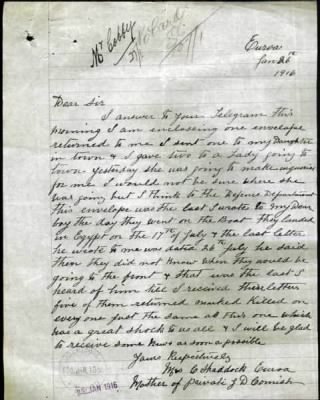 Mr Cobby
Euroa
Jan 26th
1916
Dear Sir
I answer to your Telegram this
morning I am enclosing one envelope
returned to me I sent one to my Daughter
in town & I gave two to a Lady going to
town yesterday she was going to make inquiries
for me I would not be sure where she
was going but I think to the Defence Department
this envelope was the last I wrote to my Dear
boy the day they went on the Boat They landed
in Egypt on the 17th July & the last letter
he wrote to me was dated 28th July he said
then they did not know when they would be
going to the front & that was the last I
heard of him till I received these letters
five of them returned marked Killed on
every one just the same as this one which
was a great shock to us all & I will be glad
to receive some News as soon as possible
Yours Respectively
Mrs C Shaddock Euroa
Mother of Private J D Cornish
JAN 1916